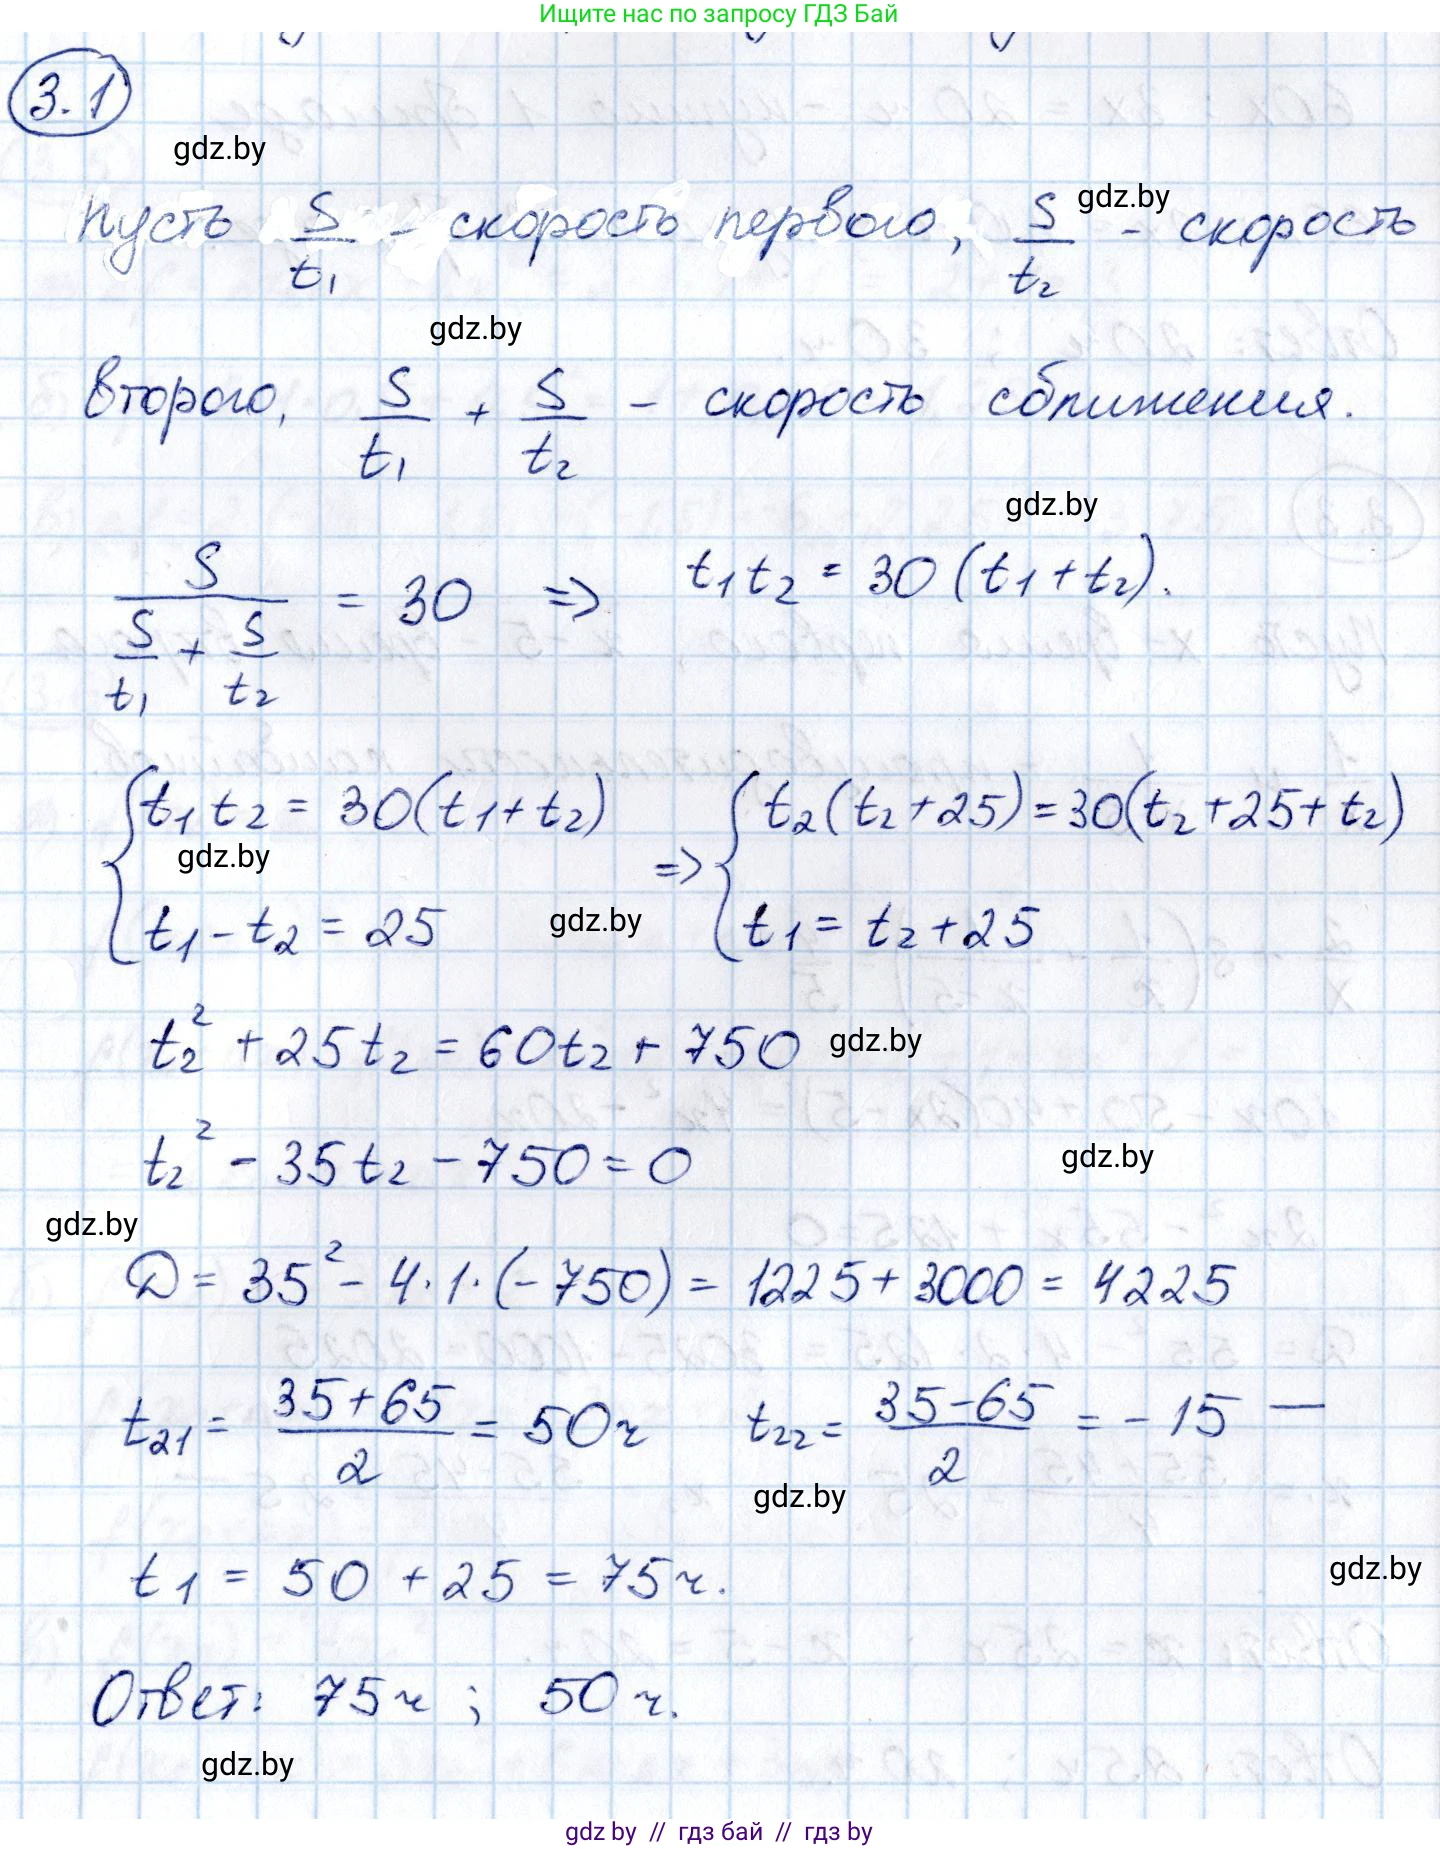 Ищите нас по запросу ГДЗ Бай
3.1
gdz.by
Пусть S/t₁ - скорость первого, S/t₂ - скорость
gdz.by
gdz.by
второго, S/t₁ + S/t₂ - скорость сближения.
gdz.by
S/(S/t₁ + S/t₂) = 30 => t₁t₂ = 30(t₁+t₂).
{t₁t₂ = 30(t₁+t₂) => {t₂(t₂+25)=30(t₂+25+t₂)
gdz.by
t₁-t₂ = 25 gdz.by t₁ = t₂+25
t₂² + 25t₂ = 60t₂ + 750 gdz.by
t₂² - 35t₂ - 750 = 0
gdz.by
gdz.by
D = 35² - 4·1·(-750) = 1225 + 3000 = 4225
t₂₁ = (35+65)/2 = 50 ч t₂₂ = (35-65)/2 = -15 —
gdz.by
t₁ = 50 + 25 = 75 ч. gdz.by
Ответ: 75 ч ; 50 ч.
gdz.by
gdz by // гдз бай // гдз by